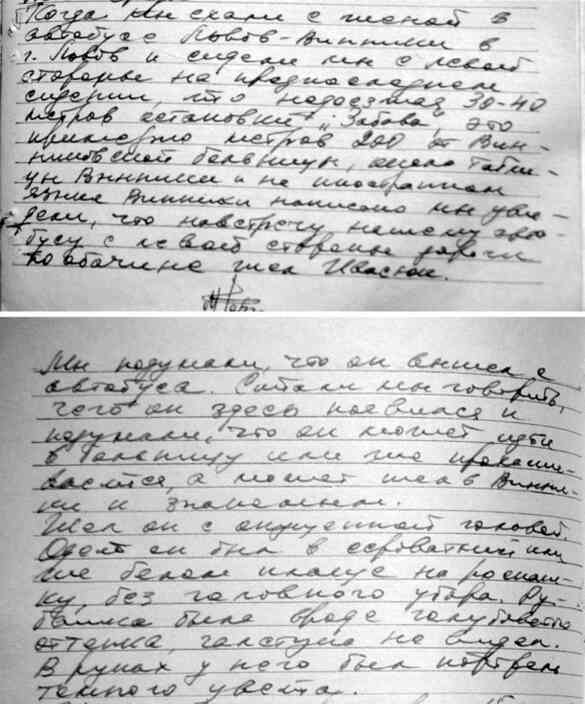 Когда мы ехали с женой в
автобусе Львов-Винники в
г. Львов и сидели мы с левой
стороны на предпоследнем
сидении, что недоезжая 30-40
метров остановки „Забава", это
примерно метров 200 от Вин-
никовской больницы, около табли-
цы Винники и на иностранном
языке Винники написано мы уви-
дели, что навстречу нашему авто-
бусу с левой стороны дороги
по обочине шел Ивасюк.
Мы подумали, что он вышел с
автобуса. Стали мы говорить,
чего он здесь появился и
подумали, что он может идти
в больницу или же
а может шел в Винни-
ки к знакомым.
Шел он с опущенной головой.
Одет он был в сероватый или
же белом плаще на распаш-
ку, без головного убора. Ру-
башка была вроде голубоватого
оттенка, галстука не видел.
В руках у него был портфель
темного цвета.